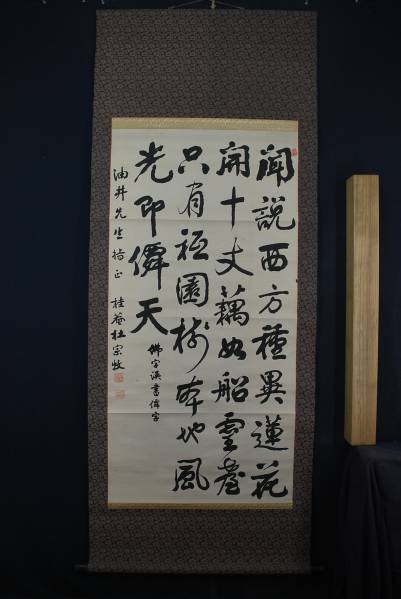 聞說西方種異蓮花
開十丈藕如船靈臺
只有祗園樹本地風
光即儛天
佛字誤書儛字
油井先生指正 桂菴杜宗牧